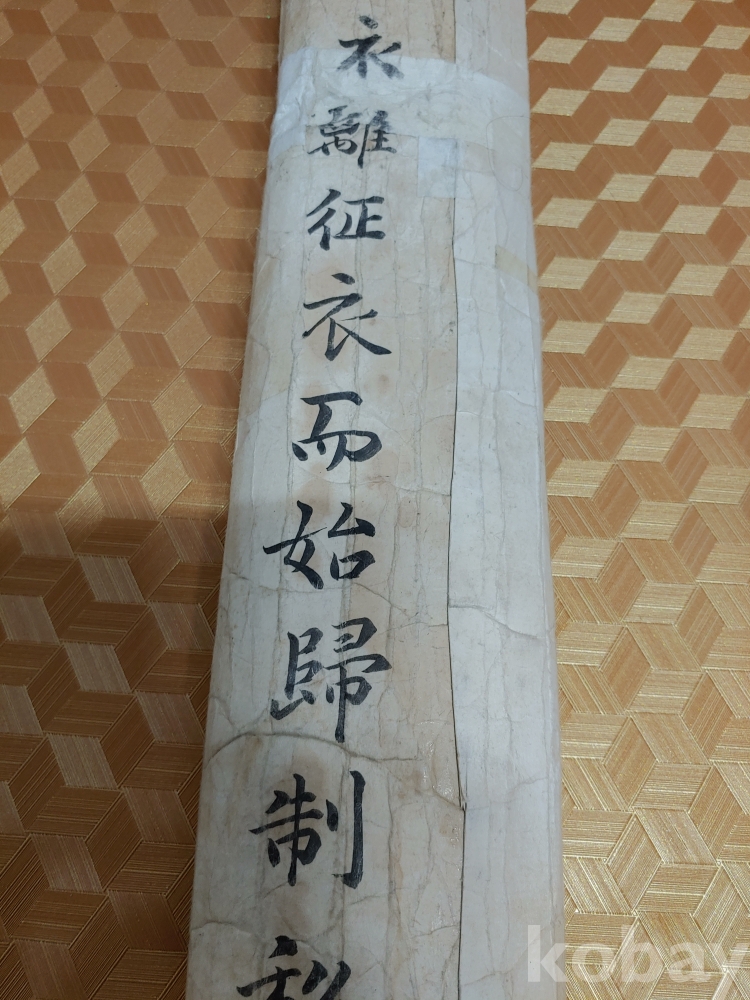 衣離征衣而始歸制
kobay